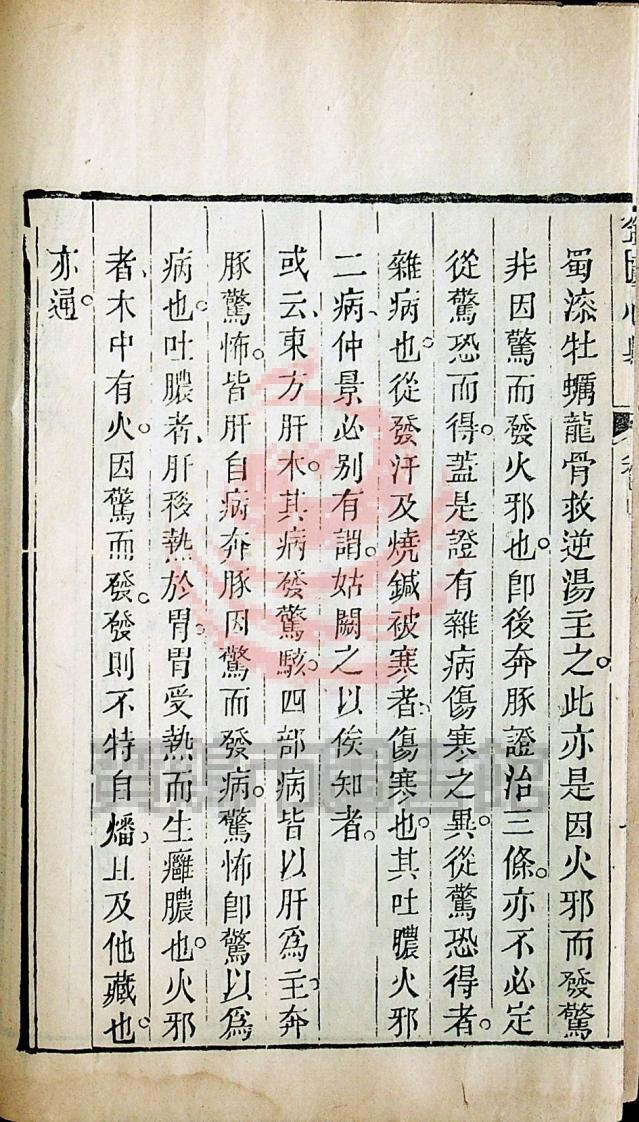 蜀漆牡蠣龍骨救逆湯主之。此亦是因火邪而發驚
非因驚而發火邪也。卽後奔豚證治三條。亦不必定
從驚恐而得。蓋是證有雜病傷寒之異。從驚恐得者。
雜病也。從發汗及燒鍼被寒者、傷寒也。其吐膿火邪
二病、仲景必别有謂。姑闕之以俟知者。
或云、東方肝木。其病發驚駭。四部病皆以肝爲主。奔
豚驚怖。皆肝自病。奔豚因驚而發病。驚怖卽驚以爲
病也。吐膿者、肝移熱於胃。胃受熱而生癰膿也。火邪
者、木中有火。因驚而發。發則不特自燔、且及他藏也。
亦通。